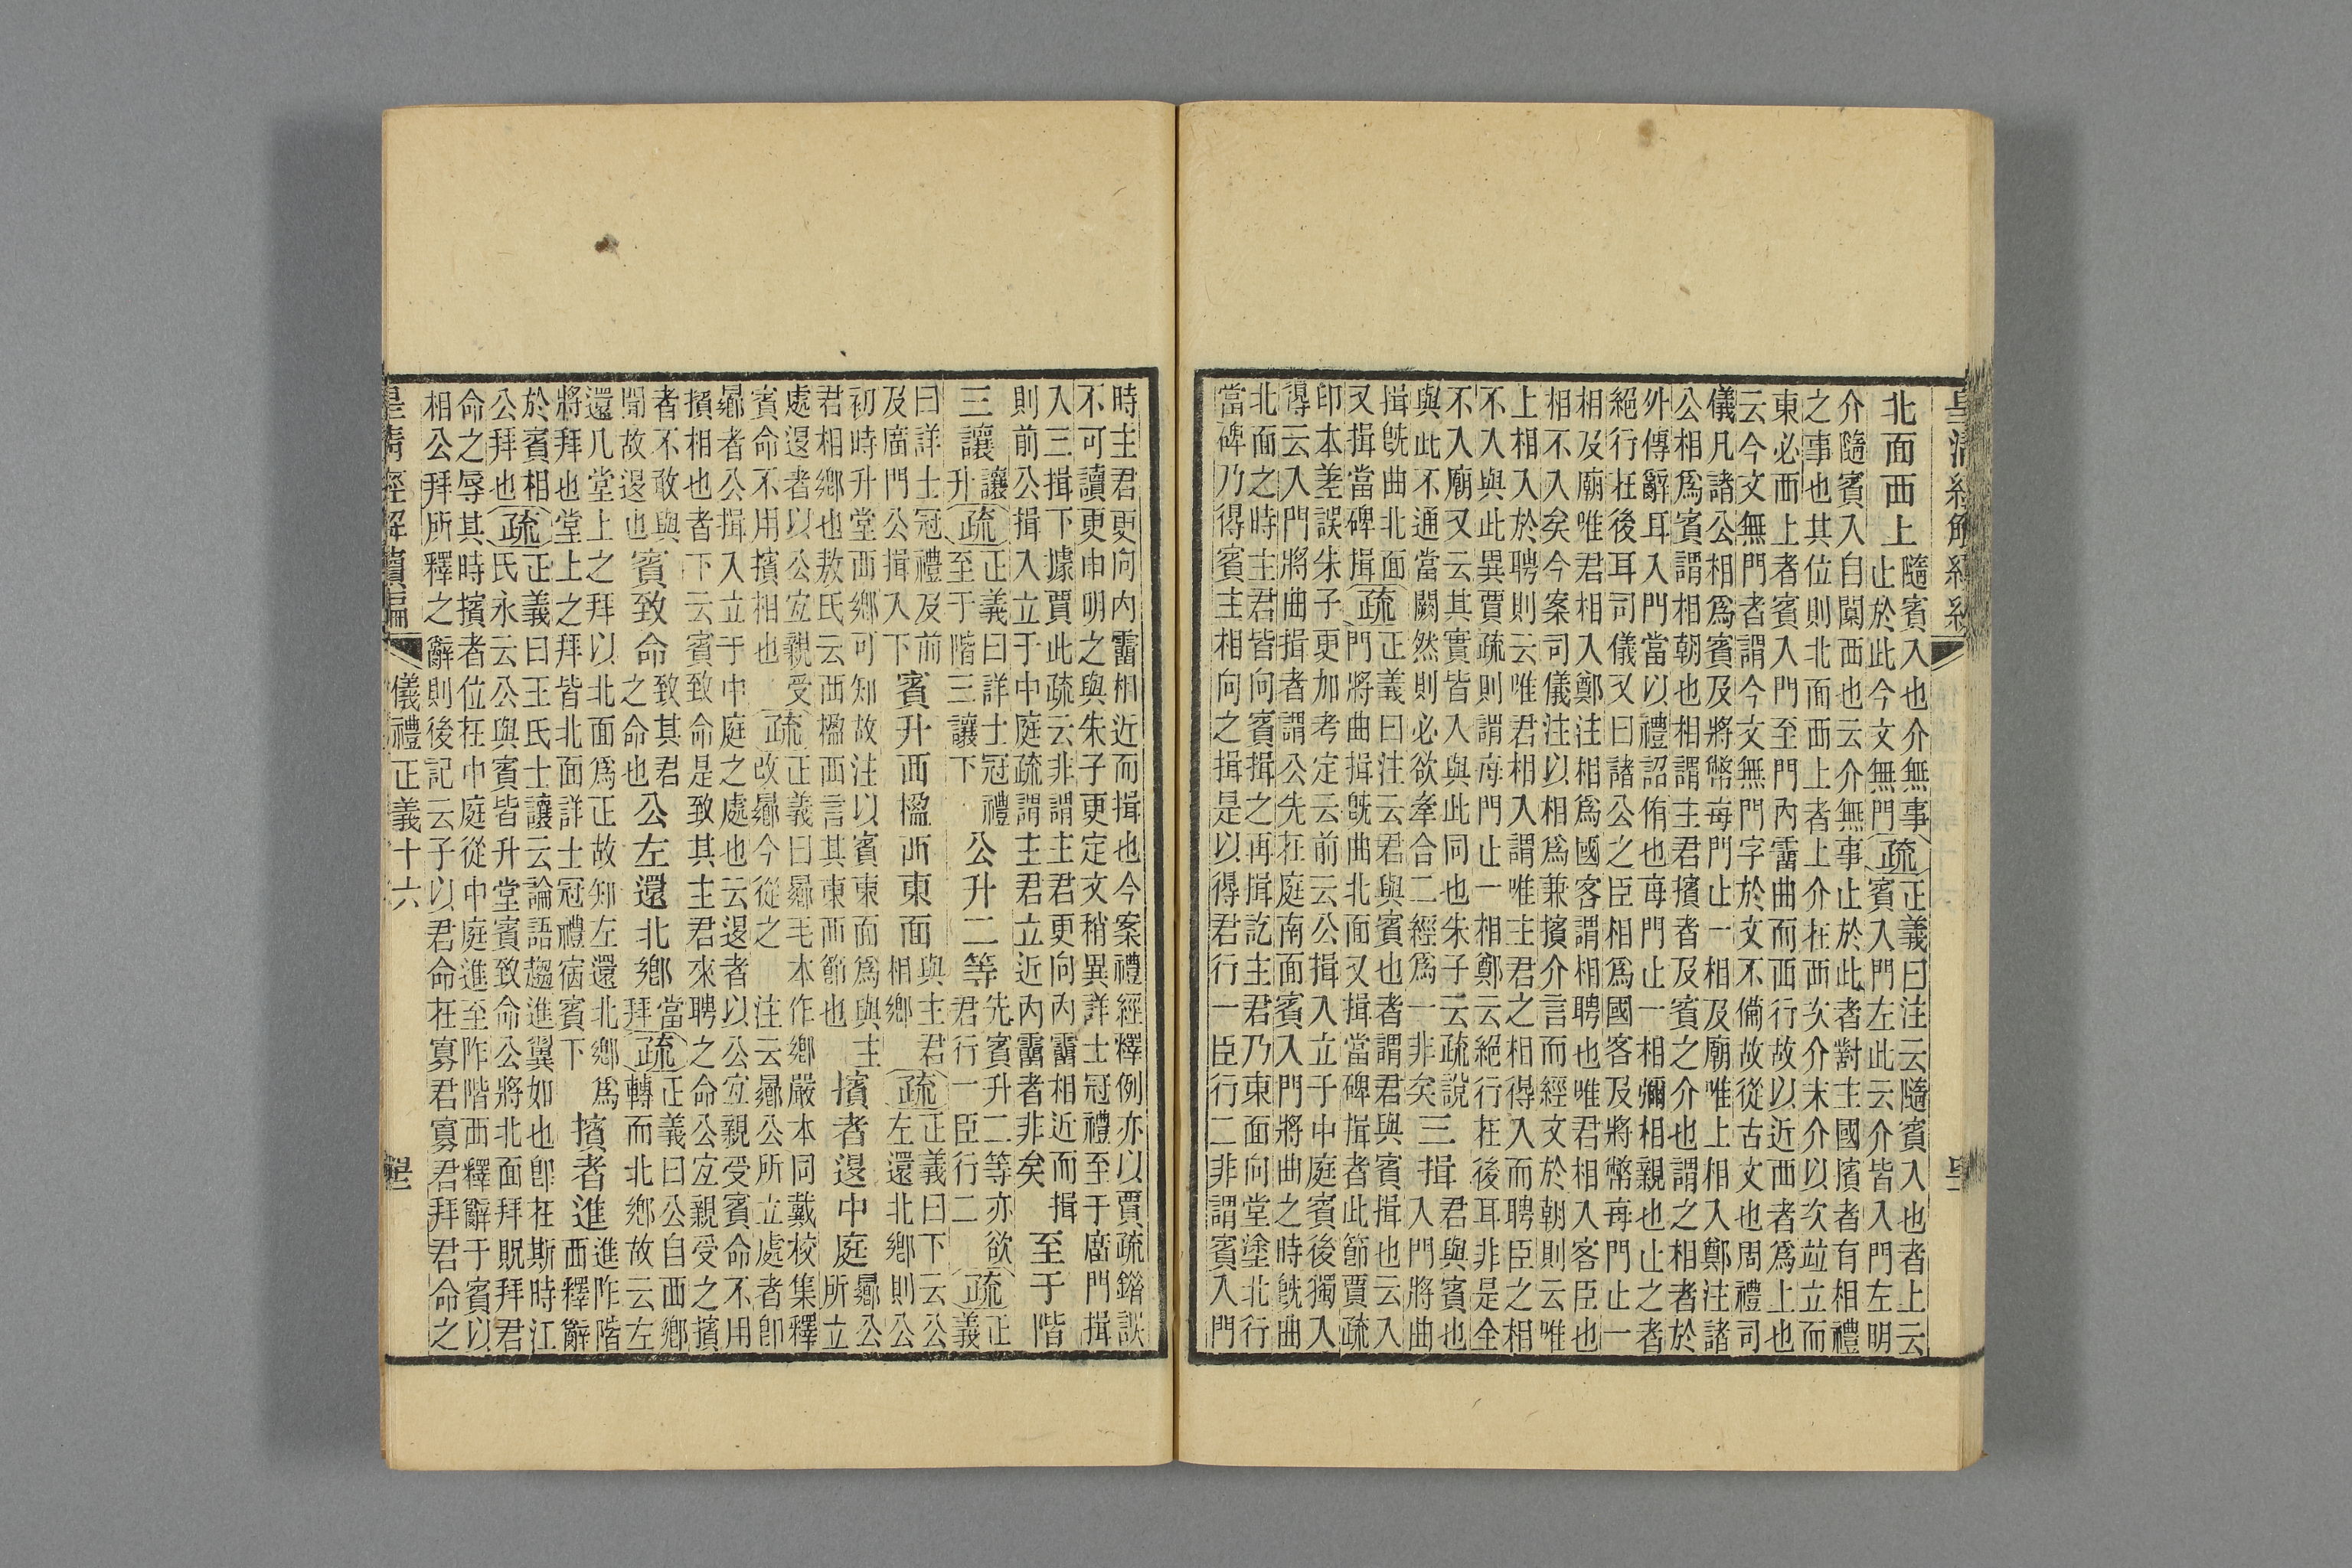 皇清經解續編
北面西上
隨賓入也介無事
止於此今文無門
疏
正義曰注云隨賓入也者上云
賓入門左此云介皆入門左明
介隨賓入自闑西也云介無事止於此者對主國擯者有相禮
之事也其位則北面西上者上介在西次介末介以次竝立而
東必西上者賓入門至門內霤曲而西行故以近西者爲上也
云今文無門者謂今文無門字於文不備故從古文也周禮司
儀凡諸公相爲賓及將幣每門止一相及廟唯上相入鄭注諸
公相爲賓謂相朝也相謂主君擯者及賓之介也謂之相者於
外傳辭耳入門當以禮詔侑也每門止一相彌相親也止之者
絕行在後耳司儀又曰諸公之臣相爲國客及將幣每門止一
相及廟唯君相入鄭注相爲國客謂相聘也唯君相入客臣也
相不入矣今案司儀注以相爲兼擯介言而經文於朝則云唯
上相入於聘則云唯君相入謂唯主君之相得入而聘臣之相
不入與此異賈疏則謂每門止一相鄭云絕行在後耳非是全
不入廟又云其實皆入與此同也朱子云疏說
與此不通當闕然則必欲牽合二經爲一非矣
三揖
君與賓也
入門將曲
揖旣曲北面
又揖當碑揖
疏
正義曰注云君與賓也者謂君與賓揖也云入
門將曲揖旣曲北面又揖當碑揖者此節賈疏
印本差誤朱子更加考定云前云公揖入立于中庭賓後獨入
得云入門將曲揖者謂公先在庭南面賓入門將曲之時旣曲
北面之時主君皆向賓揖之再揖訖主君乃東面向堂塗北行
當碑乃得賓主相向之揖是以得君行一臣行二非謂賓入門
時主君更向內霤相近而揖也今案禮經釋例亦以賈疏錯誤
不可讀更申明之與朱子更定文稍異詳士冠禮至于廟門揖
入三揖下據賈此疏云非謂主君更向內霤相近而揖
則前公揖入立于中庭疏謂主君立近內霤者非矣
至于階
三讓
讓
升
疏
正義曰詳士冠禮
至于階三讓下
公升二等
先賓升二等亦欲
君行一臣行二
疏
正
義
曰詳士冠禮及前
及廟門公揖入下
賓升西楹西東面
與主君
相鄉
疏
正義曰下云公
左還北鄉則公
初時升堂西鄉可知故注以賓東面爲與主
君相鄉也敖氏云西楹西言其東西節也
擯者退中庭
曏公
所立
處退者以公宜親受
賓命不用擯相也
疏
正義曰曏毛本作鄉嚴本同戴校集釋
改曏今從之 注云曏公所立處者卽
曏者公揖入立于中庭之處也云退者以公宜親受賓命不用
擯相也者下云賓致命是致其主君來聘之命公宜親受之擯
者不敢與
聞故退也
賓致命
致其君
之命也
公左還北鄉
當
拜
疏
正義曰公自西鄉
轉而北鄉故云左
還几堂上之拜以北面爲正故知左還北鄉爲
將拜也堂上之拜皆北面詳士冠禮宿賓下
擯者進
進阼階
西釋辭
於賓相
公拜也
疏
正義曰王氏士讓云論語趨進翼如也卽在斯時江
氏永云公與賓皆升堂賓致命公將北面拜貺拜君
命之辱其時擯者位在中庭從中庭進至阼階西釋辭于賓以
相公拜所釋之辭則後記云子以君命在寡君寡君拜君命之
皇清經解續編
儀禮正義十六